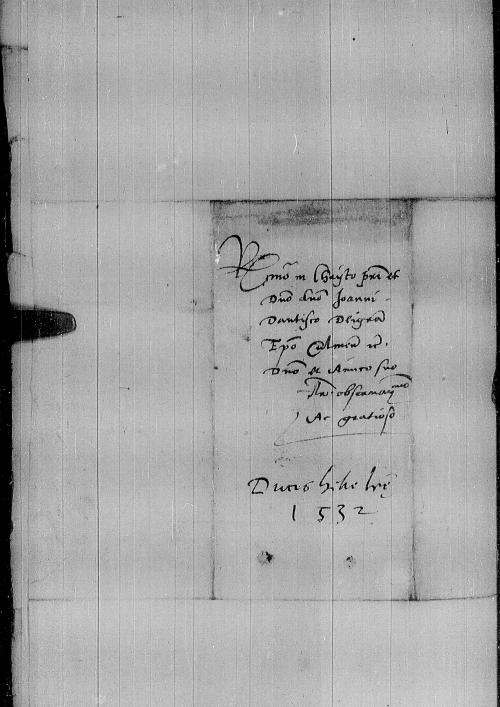 Rmo in Christo pri et
Dno dno Ioanni
Dantisco Dei gra
Epo Culmen
Dno et Amico suo
obseruan
Ac gratioso
Ducis
1532